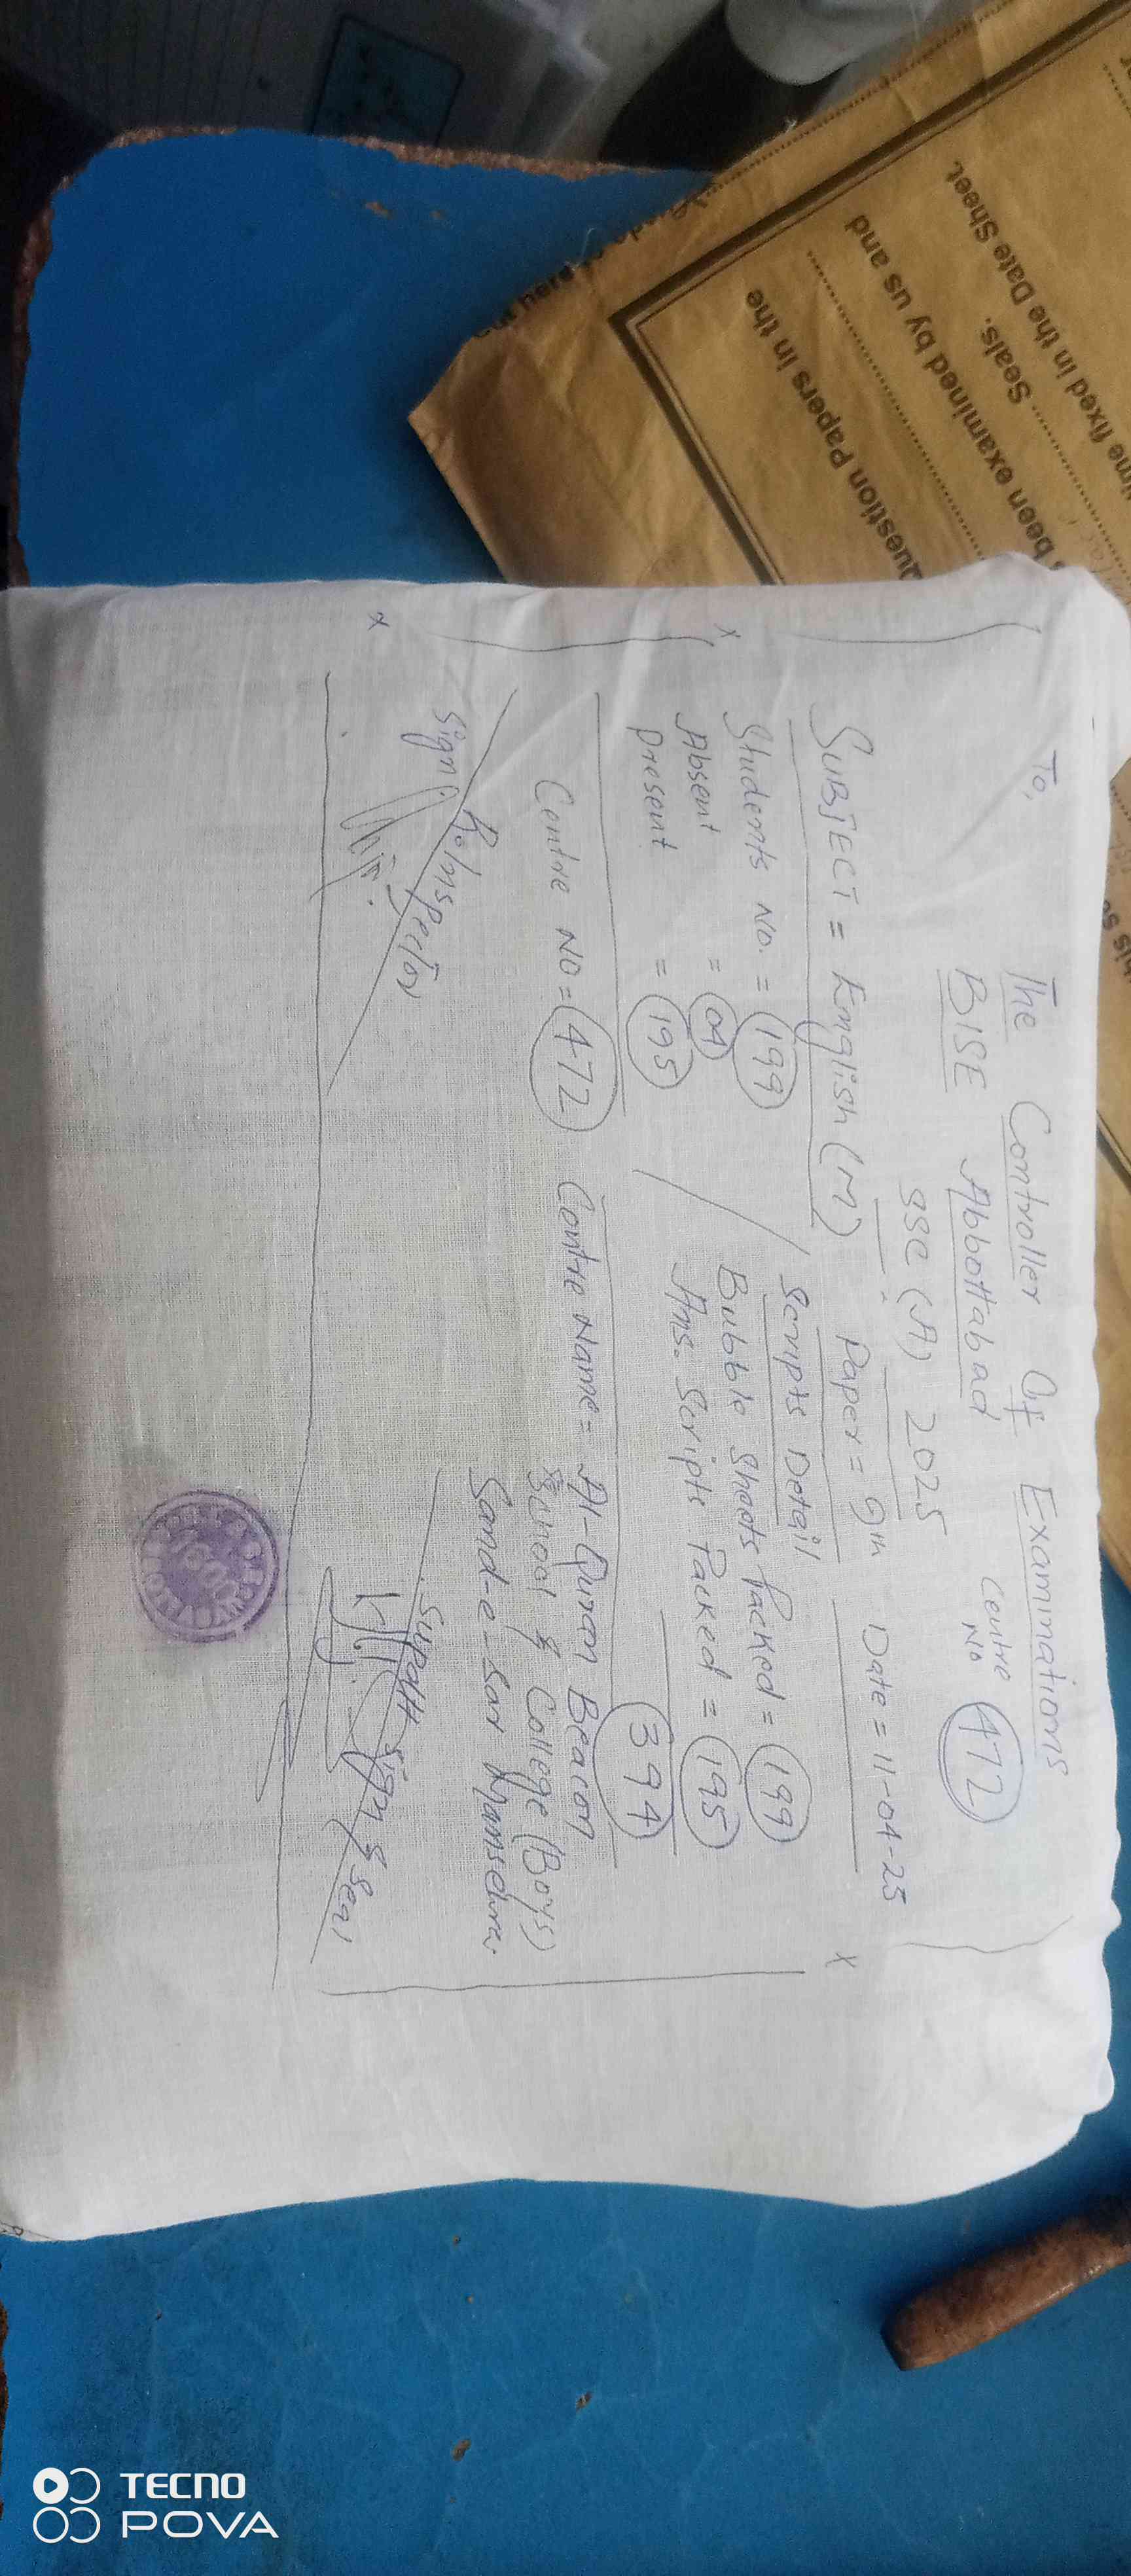 To,
The Controller Of Examinations
BISE Abbottabad
Centre No 472
SSC (A) 2025
SUBJECT = English (M) Paper = 9th Date = 11-04-25
Students No. = 199
Absent = 04
present = 195
Scripts Detail
Bubble Sheets Packed = 199
Ans. Scripts Packed = 195
394
Centre No = 472
Centre Name = Al-Quran Beacon
School & College (Boys)
Sand-e-Sar Mansehra.
Sign R. Inspector
Supdtt sign & Seal
Question Papers in the
been examined by us and
Seals.
time fixed in the Date Sheet.
TECNO
POVA